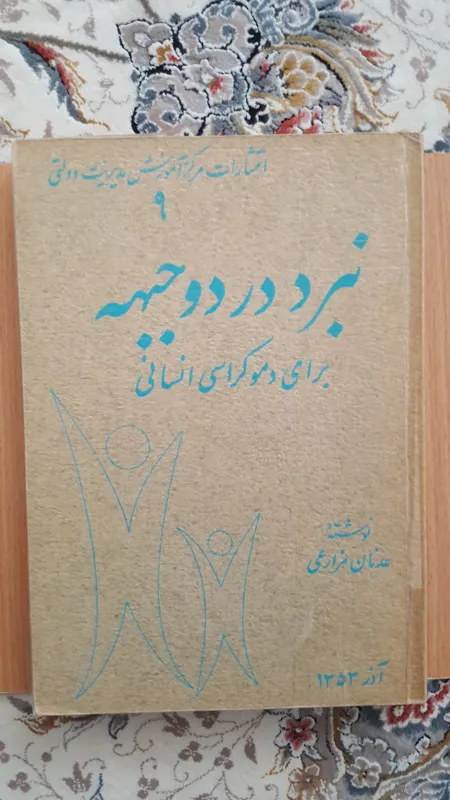 انتشارات مرکز آموزش مدیریت دولتی
۹
نبرد در دو جبهه
برای دموکراسی انسانی
نوشته
عدنان مزارعی
آذر ۱۳۵۳